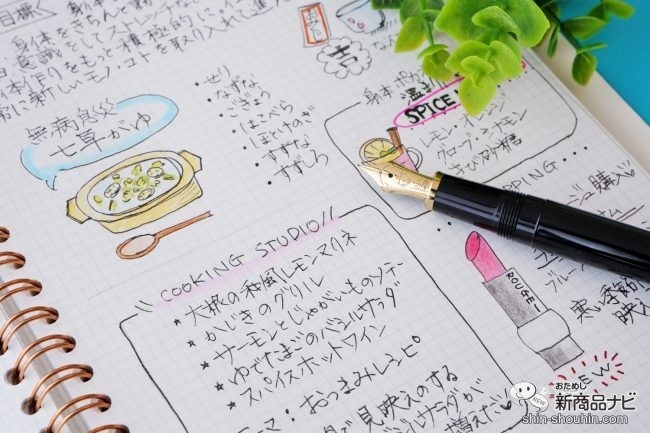 目標
身体をきちんと動
意識をしてストレッチな
本作りをもっと積極的に
常に新しいモノ・コトを取り入れて
おみくじ
吉
無病息災
七草がゆ
・せり
・なずな
・ごぎょう
・はこべら
・ほとけのざ
・すずな
・すずしろ
身体
SPICE
レモン・オレンジ
クローブ・シナモン
きび砂糖
PPING...
購入
ブルー
寒い季節
映え
ROUGE
NEW
COOKING STUDIO
★大根の和風レモンマリネ
★かじきのグリル
★サーモンとじゃがいものソテー
★ゆでたまごのバジルサラダ
★スパイスホットワイン
マ:おつまみレシピ
見映えのする
バジルサラダが
おためし
新商品ナビ
shin-shouhin.com